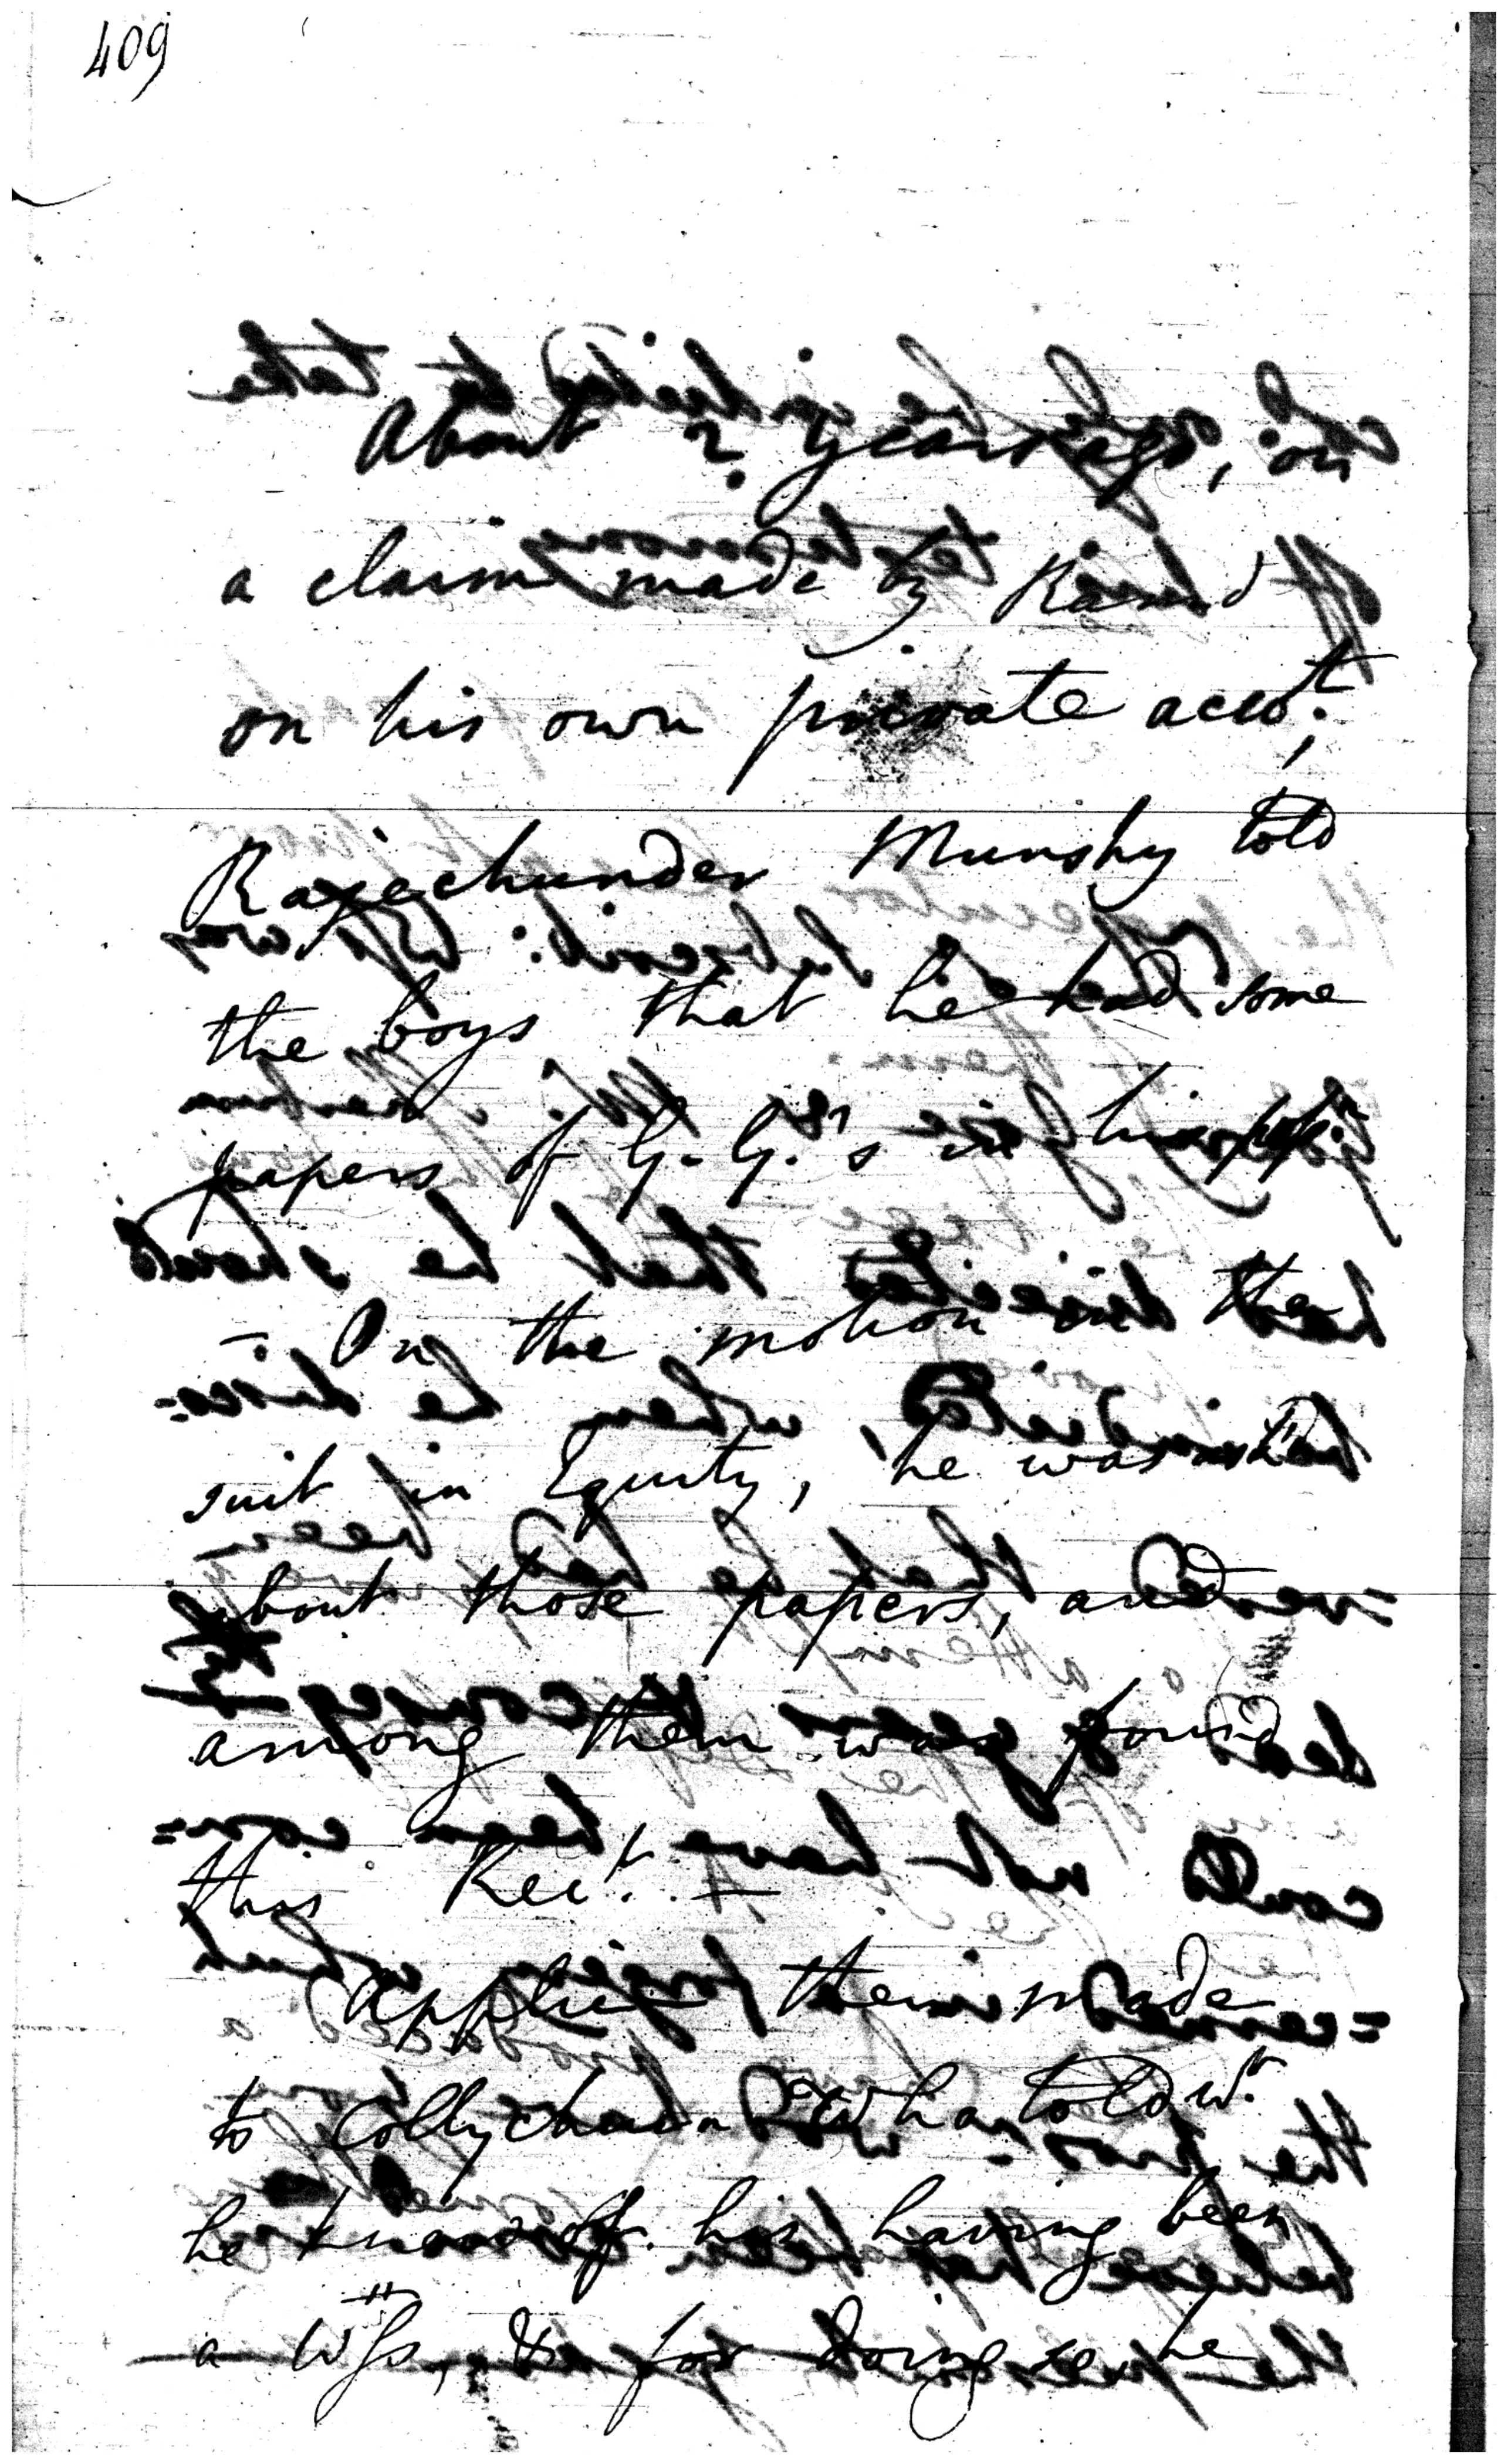 409
About 2 years ago, on
a claim made by Ramd
on his own private acco.t,
Rajechunder Munshy told
the boys that he had some
papers of G. G.'s in his
— On the motion in the
suit in Equity, he was
about those papers, and
among them was found
this Rec.t. —
Applic.n then made
to Collychurn who told
he knows of his having been
a W.ss, & for doing so he